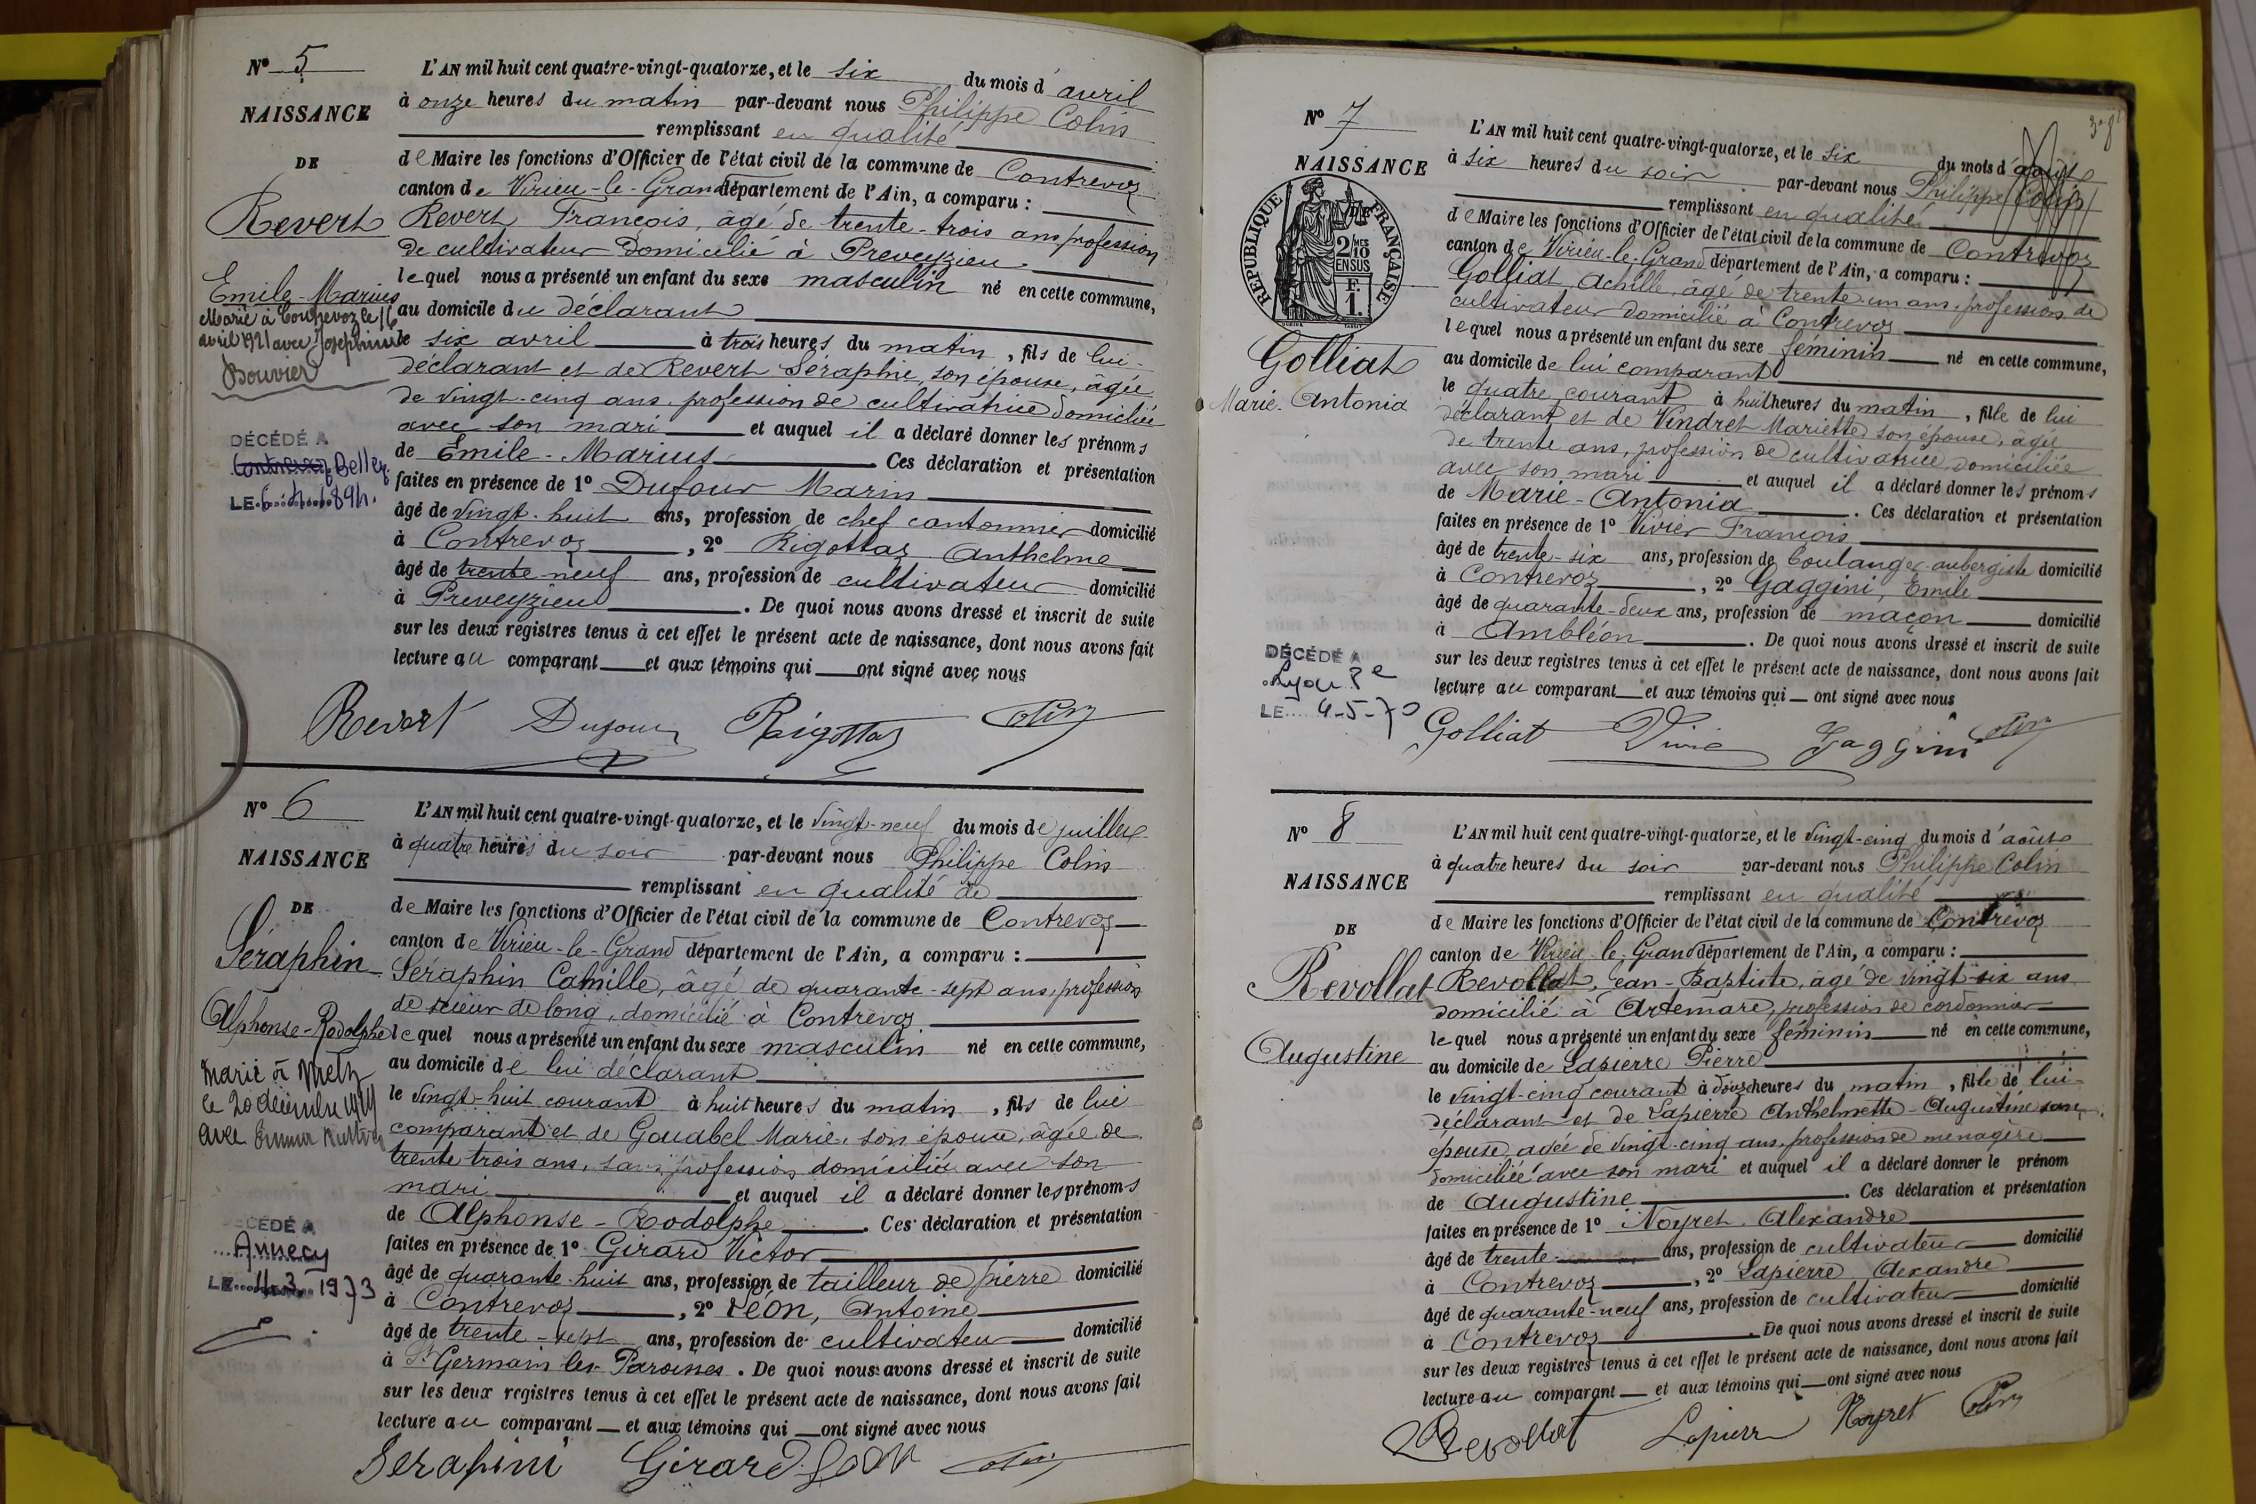 N° 5
NAISSANCE
DE
Revert
Emile-Marius
Marié à Contrevoz le 16
avril 1921 avec Joséphine
Bouvier
DÉCÉDÉ A
Contrevoz Belley.
LE 6.4.1894.
L'AN mil huit cent quatre-vingt-quatorze, et le six du mois d'avril
à onze heures du matin par-devant nous Philippe Colin
remplissant en qualité
de Maire les fonctions d'Officier de l'état civil de la commune de Contrevoz
canton de Virieu-le-Grand département de l'Ain, a comparu :
Revert François, âgé de trente-trois ans, profession
de cultivateur domicilié à Preveyzieu
lequel nous a présenté un enfant du sexe masculin né en cette commune,
au domicile du déclarant
le six avril à trois heures du matin, fils de lui-
déclarant et de Revert Séraphie, son épouse, âgée
de vingt-cinq ans, profession de cultivatrice domiciliée
avec son mari et auquel il a déclaré donner les prénoms
de Emile-Marius. Ces déclaration et présentation
faites en présence de 1° Dufour Marin
âgé de vingt-huit ans, profession de chef cantonnier domicilié
à Contrevoz, 2° Rigottaz Anthelme
âgé de trente-neuf ans, profession de cultivateur domicilié
à Preveyzieu. De quoi nous avons dressé et inscrit de suite
sur les deux registres tenus à cet effet le présent acte de naissance, dont nous avons fait
lecture au comparant et aux témoins qui ont signé avec nous
Revert Dufour Rigottaz Colin
N° 6
NAISSANCE
DE
Séraphin
Alphonse-Rodolphe
Marié à Metz
le 20 décembre 1919
avec Emma
DÉCÉDÉ A
Annecy
LE 11.3.1973
L'AN mil huit cent quatre-vingt-quatorze, et le vingt-neuf du mois de juillet
à quatre heures du soir par-devant nous Philippe Colin
remplissant en qualité de
de Maire les fonctions d'Officier de l'état civil de la commune de Contrevoz
canton de Virieu-le-Grand département de l'Ain, a comparu :
Séraphin Camille, âgé de quarante-sept ans, profession
de scieur de long, domicilié à Contrevoz
lequel nous a présenté un enfant du sexe masculin né en cette commune,
au domicile de lui déclarant
le vingt-huit courant à huit heures du matin, fils de lui
comparant et de Gouabel Marie, son épouse, âgée de
trente trois ans, sans profession domiciliée avec son
mari et auquel il a déclaré donner les prénoms
de Alphonse-Rodolphe. Ces déclaration et présentation
faites en présence de 1° Girard Victor
âgé de quarante-huit ans, profession de tailleur de pierre domicilié
à Contrevoz, 2° Léon, Antoine
âgé de trente-sept ans, profession de cultivateur domicilié
à St Germain les Paroisses. De quoi nous avons dressé et inscrit de suite
sur les deux registres tenus à cet effet le présent acte de naissance, dont nous avons fait
lecture au comparant et aux témoins qui ont signé avec nous
Serafini Girard Léon Colin
N° 7
NAISSANCE
DE
RÉPUBLIQUE FRANÇAISE
2/10 MES
EN SUS
1 F.
Golliat
Marie-Antonia
DÉCÉDÉ A
Lyon 8e
LE 4-5-70
L'AN mil huit cent quatre-vingt-quatorze, et le six du mois d'août
à six heures du soir par-devant nous Philippe Colin
remplissant en qualité
de Maire les fonctions d'Officier de l'état civil de la commune de Contrevoz
canton de Virieu-le-Grand département de l'Ain, a comparu :
Golliat, Achille, âgé de trente-un ans, profession de
cultivateur domicilié à Contrevoz
lequel nous a présenté un enfant du sexe féminin né en cette commune,
au domicile de lui comparant
le quatre courant à huit heures du matin, fille de lui
déclarant et de Vindret Mariette son épouse, âgée
de trente ans, profession de cultivatrice domiciliée
avec son mari et auquel il a déclaré donner les prénoms
de Marie-Antonia. Ces déclaration et présentation
faites en présence de 1° Vivier François
âgé de trente-six ans, profession de boulanger-aubergiste domicilié
à Contrevoz, 2° Gaggini, Emile
âgé de quarante-deux ans, profession de maçon domicilié
à Ambléon. De quoi nous avons dressé et inscrit de suite
sur les deux registres tenus à cet effet le présent acte de naissance, dont nous avons fait
lecture au comparant et aux témoins qui ont signé avec nous
Golliat Vivié Gaggini Colin
N° 8
NAISSANCE
DE
Revollat
Augustine
L'AN mil huit cent quatre-vingt-quatorze, et le vingt-cinq du mois d'août
à quatre heures du soir par-devant nous Philippe Colin
remplissant en qualité
de Maire les fonctions d'Officier de l'état civil de la commune de Contrevoz
canton de Virieu-le-Grand département de l'Ain, a comparu :
Revollat, Jean-Baptiste, âgé de vingt-six ans
domicilié à Artemare, profession de cordonnier
lequel nous a présenté un enfant du sexe féminin né en cette commune,
au domicile de Lapierre Pierre
le vingt-cinq courant à douze heures du matin, fille de lui-
déclarant et de Lapierre Anthelmette-Augustine son
épouse âgée de vingt-cinq ans, profession de ménagère
domiciliée avec son mari et auquel il a déclaré donner le prénom
de Augustine. Ces déclaration et présentation
faites en présence de 1° Noyret Alexandre
âgé de trente ans, profession de cultivateur domicilié
à Contrevoz, 2° Lapierre Alexandre
âgé de quarante-neuf ans, profession de cultivateur domicilié
à Contrevoz. De quoi nous avons dressé et inscrit de suite
sur les deux registres tenus à cet effet le présent acte de naissance, dont nous avons fait
lecture au comparant et aux témoins qui ont signé avec nous
Revollat Lapierre Noyret Colin